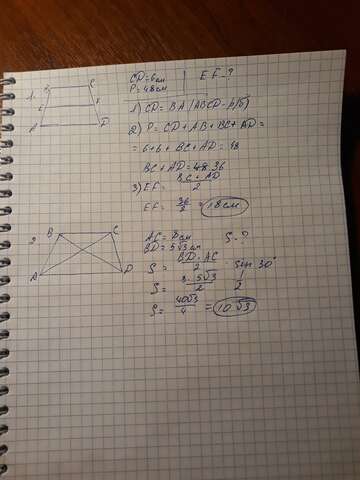 1.
B C
6 6
A D
CD=6см
P=48см
EF-?
1) CD=BA (ABCD-р/б)
2) P=CD+AB+BC+AD=
=6+6+BC+AD=48
BC+AD=48 36
3) EF= BC+AD/2
EF= 36/2 = 18см
2
B C
A D
AC=8см
BD=5√3см
S-?
S= BD·AC/2 · sin 30°
S= 8·5√3/2 · 1/2
S= 40√3/4 = 10√3